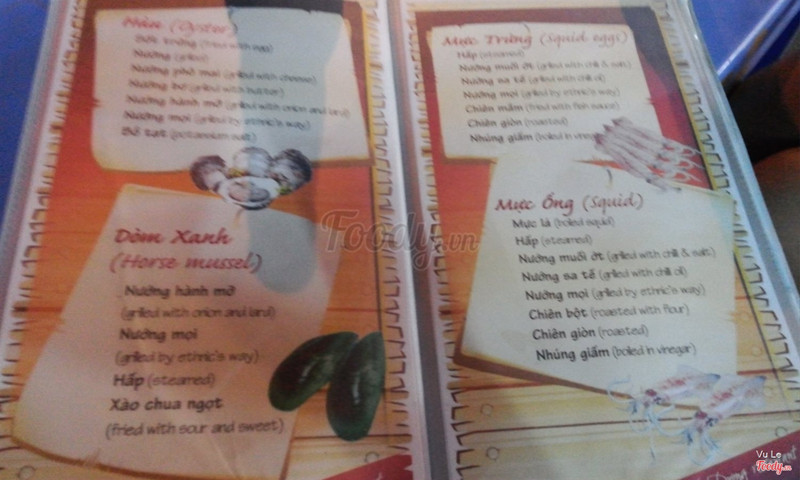 Hàu (Oyster)
Bốt trứng (fried with egg)
Nướng (grilled)
Nướng phô mai (grilled with cheese)
Nướng bơ (grilled with butter)
Nướng hành mỡ (grilled with onion and lard)
Nướng mọi (grilled by ethnic's way)
Bỏ tạt (potannium salt)
Dòm Xanh
(Horse mussel)
Nướng hành mỡ
(grilled with onion and lard)
Nướng mọi
(grilled by ethnic's way)
Hấp (steamed)
Xào chua ngọt
(fried with sour and sweet)
Mực Trứng (Squid eggs)
Hấp (steamed)
Nướng muối ớt (grilled with chili & salt)
Nướng sa tế (grilled with chili oil)
Nướng mọi (grilled by ethnic's way)
Chiên mắm (fried with fish sauce)
Chiên giòn (roasted)
Nhúng giấm (boiled in vinegar)
Mực Ống (Squid)
Mực lá (boiled squid)
Hấp (steamed)
Nướng muối ớt (grilled with chili & salt)
Nướng sa tế (grilled with chili oil)
Nướng mọi (grilled by ethnic's way)
Chiên bột (roasted with flour)
Chiên giòn (roasted)
Nhúng giấm (boiled in vinegar)
Foody.vn
Vu Le
Foody.vn